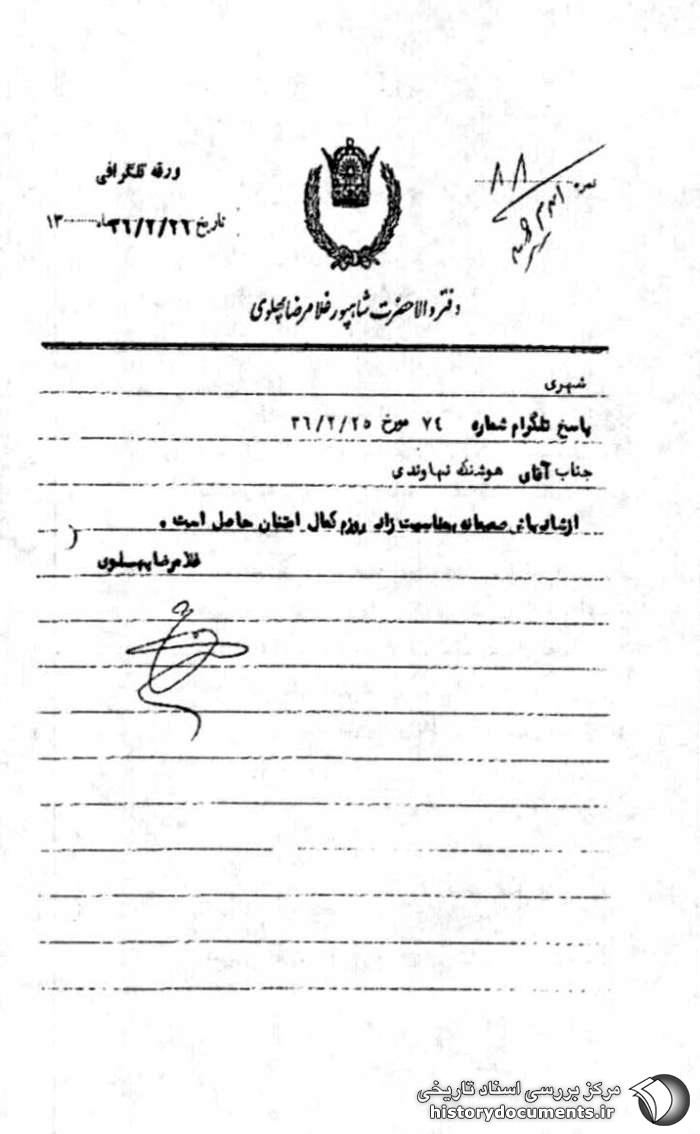 ورقه تلگرافی
تاریخ ۳۶/۲/۲۶ ماه ۱۳
نمره ۸۸
دفتر والاحضرت شاهپور غلامرضا پهلوی
شهری
پاسخ تلگرام شماره ۷۴ مورخ ۳۶/۲/۲۵
جناب آقای هوشنگ نهاوندی
از شادباش صمیمانه بمناسبت زاد روزم کمال امتنان حاصل است .
غلامرضا پهلوی
مرکز بررسی اسناد تاریخی
historydocuments.ir